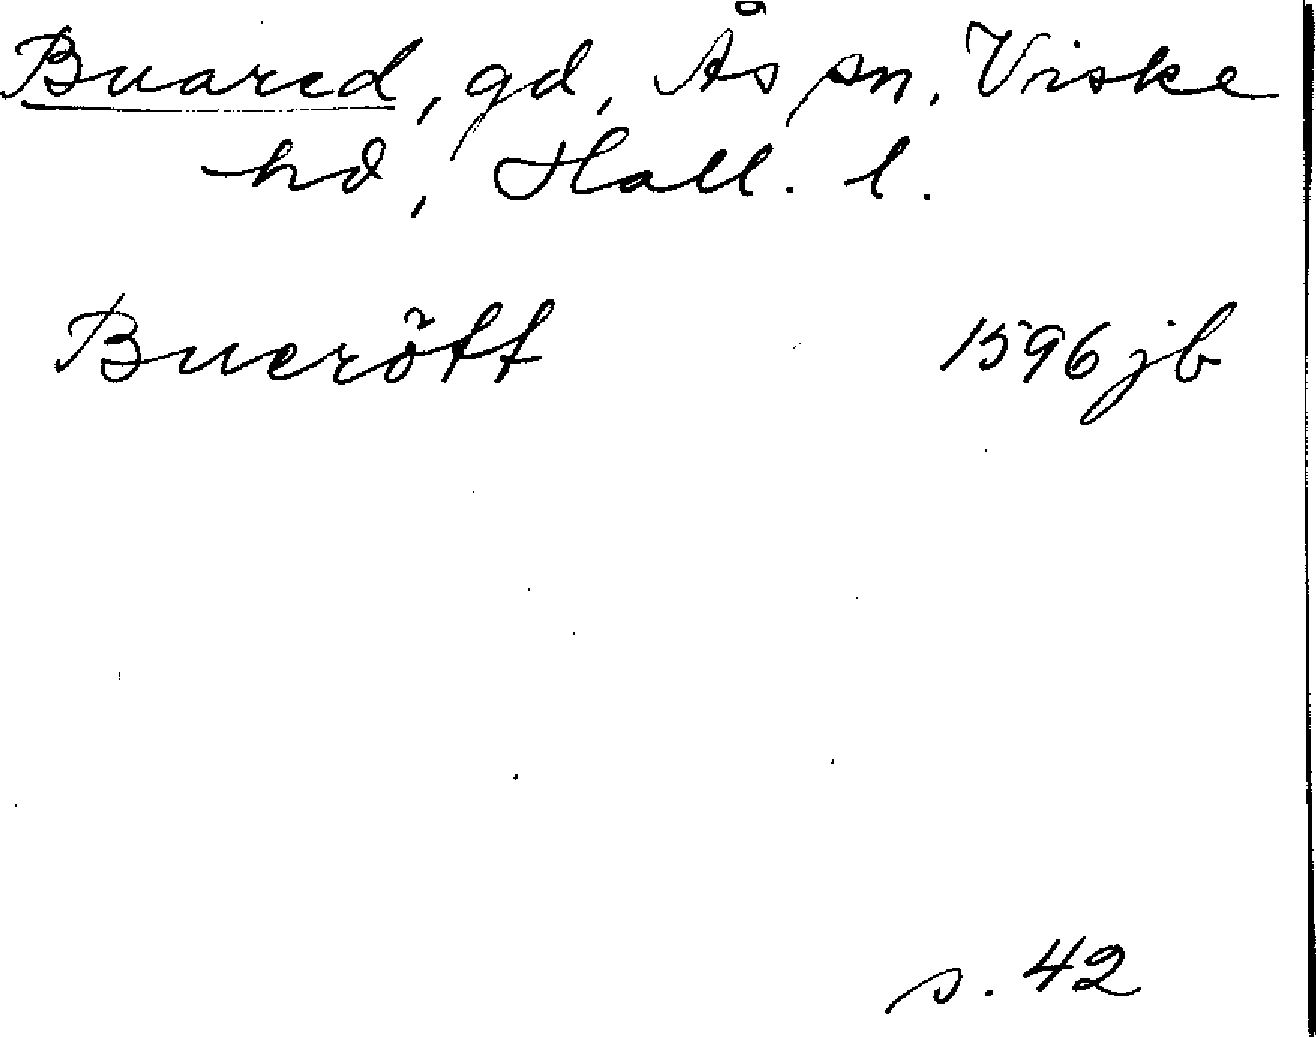 Buared, gd, Ås sn, Viske
hd, Hall. l.
Buerött 1596 jb
s. 42